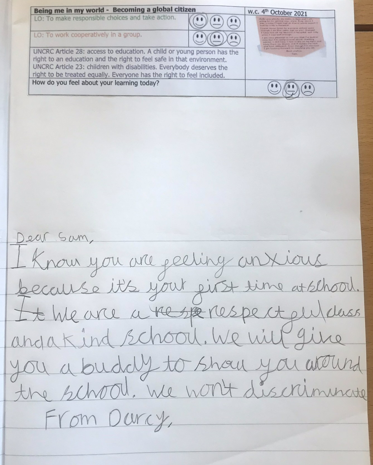 Being me in my world - Becoming a global citizen
w.c. 4th October 2021
LO: To make responsible choices and take action.
LO: To work cooperatively in a group.
UNCRC Article 28: access to education. A child or young person has the
right to an education and the right to feel safe in that environment.
UNCRC Article 23: children with disabilities. Everybody deserves the
right to be treated equally. Everyone has the right to feel included.
How do you feel about your learning today?
Dear Sam,
I know you are feeling anxious
because it's your first time at school.
It We are a respectful class
and a kind school. We will give
you a buddy to show you around
the school. We won't discriminate
From Darcy,